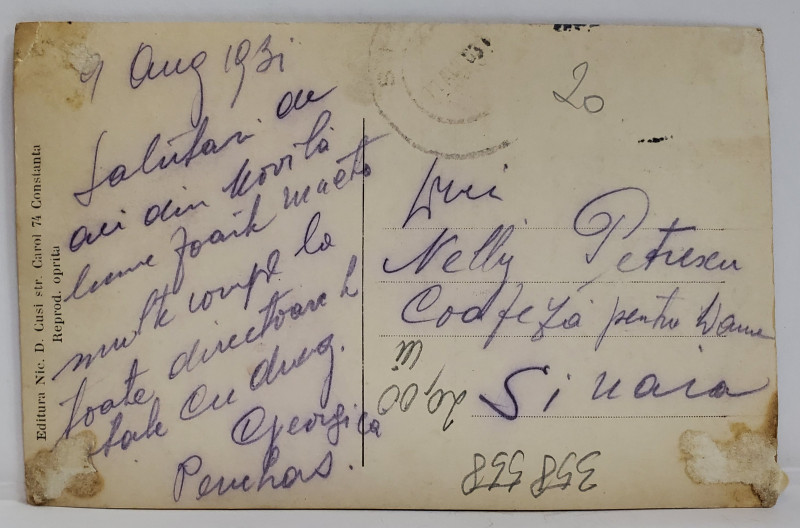 9 Aug 1931
Salutari de
aci din Movilă
lume foarte multă
multe compl la
toate directoare
tale cu drag.
Georgica
Penchas.
Editura Nic. D. Cusi str. Carol 74 Constanta
Reprod. oprita
20
Nelly Petrescu
Coafeză pentru Dame
Sinaia
20,00
lei
358 558